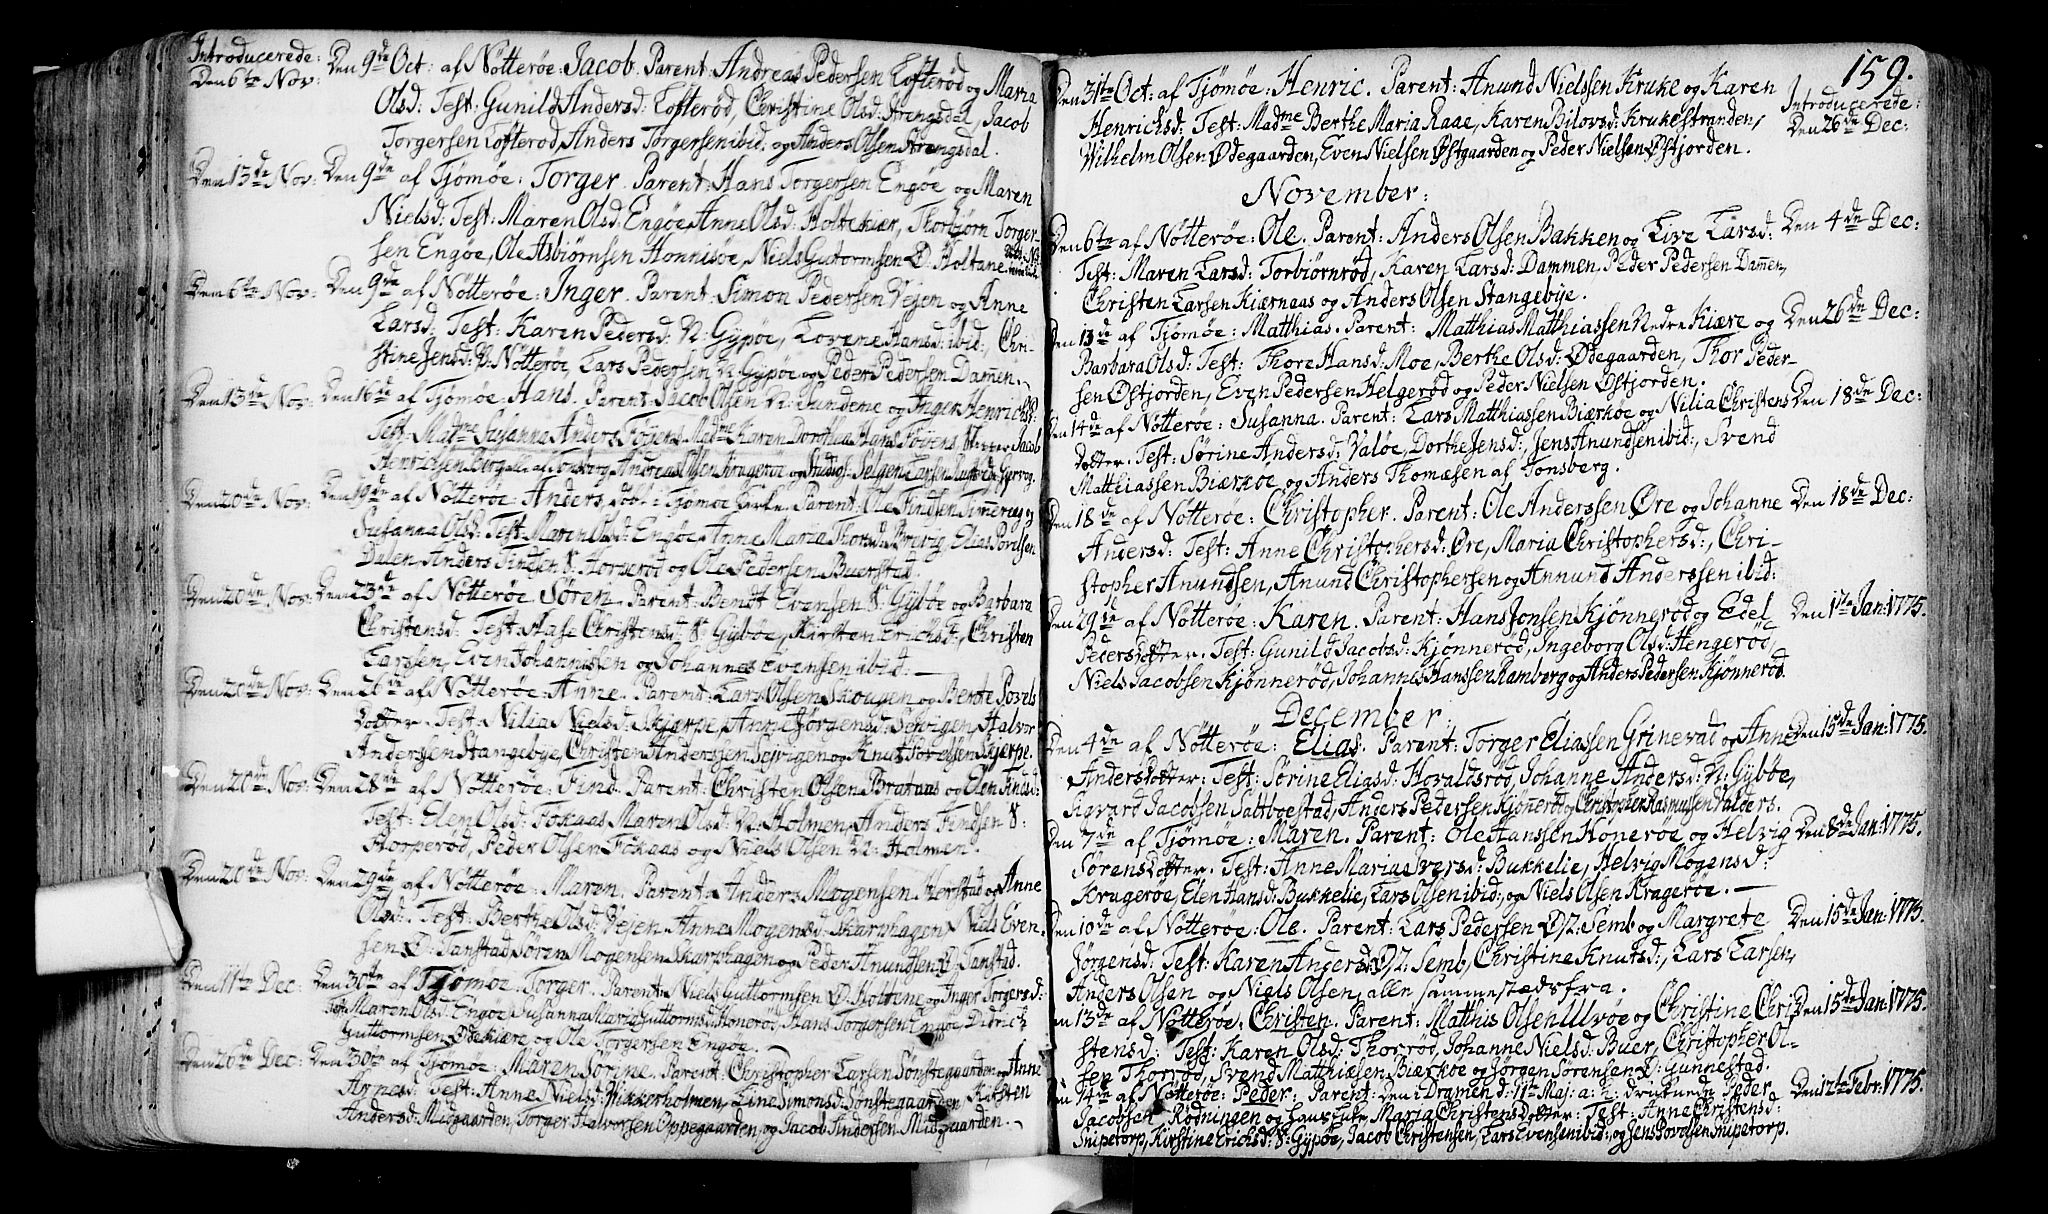 Introducerede:
Den 6te Nov: Den 9de Oct: af Nötterøe: Jacob. Parent: Andreas Pedersen Lofterød og Maria
Olsd: Test: Gunild Andersd: Lofterød, Christine Olsd: Strengsdal, Jacob
Torgersen Lofterød, Anders Torgersen ibid: og Anders Olsen Strengsdal.
Den 13de Nov: Den 9de af Tjömöe: Torger. Parent: Hans Torgersen Engöe og Maren
Nielsd: Test: Maren Olsd: Engöe, Anne Olsd: Holtekiær, Thorbjörn Torger-
sen Engöe, Ole Asbiörnsen Honnisöe, Niels Gutormsen Ø. Holtane.
Den 6te Nov: Den 9de af Nötterøe: Inger. Parent: Simon Pedersen Vejen og Anne
Larsd: Test: Karen Pedersd: N: Gypöe, Lovene Hansd: ibid:, Chri-
stine Jensd: Ø: Nötteröe, Lars Pedersen N: Gypöe og Peder Pedersen Damen.
Den 13de Nov: Den 16de af Tjömöe: Hans. Parent: Jacob Olsen N: Sundene og Inger Henrichsd:
Test: Madme Susanna Anders Föyens, Madme Karen Dorothea Hans Föyens, Jacob
Henrichsen Berg af Tonsberg, Andreas Olsen Krageröe og
Den 20de Nov: Den 19de af Nötteröe: Anders, Tjömöe Parent: Ole Findsen og
Susanna Olsd: Test: Maren Olsd: Engöe, Anne Maria Thorsd: Brevig, Elias Povelsen
Dalen, Anders Findsen S: Horperød og Ole Pedersen Buerstad.
Den 20de Nov: Den 23de af Nötteröe Sören. Parent: Bendt Evensen S: Gyböe og Barbara
Christensd: Test: Aase Christensd: S: Gyböe, Kirsten Erichsd:, Christen
Larssen, Even Johannissen og Johannes Evensen ibid:
Den 20de Nov: Den 26de af Nötteröe: Anne. Parent: Lars Olsen Skougen og Berte Povels
Dotter. Test: Nilia Nielsd: Skjerpe, Anne Jörgensd: Sevrigen, Halvor
Anderssen Stangebye, Christen Anderssen Sevrigen og Knut Sörensen Skjerpe.
Den 20de Nov: Den 28de af Nötteröe: Find. Parent: Christen Olsen Brataas og Elen Findsd:
Test: Elem Olsd: Fökaas, Maren Olsd: N: Holmen, Anders Findsen S:
Horperød, Peder Olsen Fökaas og Niels Olsen N: Holmen.
Den 20de Nov: Den 29de af Nötteröe: Maren. Parent: Anders Mogensen Herstad og Anne
Olsd: Test: Berthe Olsd: Vejen, Anne Mogensd: Skarphagen, Niels Even-
sen Ø: Tanstad, Sören Mogensen Skarphagen og Peder Anundsen Ø: Tanstad.
Den 11te Dec: Den 30te af Tjömöe: Torger. Parent: Niels Guttormsen Ø. Holtene og Inger Torgersd:
Test: Maren Olsd: Engöe, Susanna Maria Guttormsd: Honeröd, Hans Torgersen Engöe, Didrich
Guttormsen Ødekiære og Ole Torgersen Engöe.
Den 26de Dec: Den 30te af Tjömöe: Maren Sörine. Parent: Christopher Larsen Sönstegaarden og Anne
Arnesd: Test: Anne Nielsd: Vikkerholmen, Eline Simonsd: Sönstegaarden, Kirsten
Andersd: Midgaarden, Torger Halvorsen Oppegaarden, og Jacob Andersen Midgaarden.
159.
Introducerede:
Den 31te Oct: af Tjömöe: Henric. Parent: Anund Nielssen Kruke og Karen
Henrichsd: Test: Madme Berthe Maria Raae, Karen Bilovsd: Krukestranden, Den 26de Dec:
Wilhelm Olsen Ødegaarden, Even Nielsen Østgaarden og Peder Nielsen Østjorden.
November:
Den 6te af Nötteröe: Ole. Parent: Anders Olsen Bakken og Live Larsd: Den 4de Dec:
Test: Maren Larsd: Torbiörnröd, Karen Larsd: Dammen, Peder Pedersen Damen,
Christen Larsen Kiærnaas og Anders Olsen Stangebye.
Den 13de af Tjömöe: Matthias. Parent: Matthias Matthiassen Nedre Kiære og Den 26de Dec:
Barbara Olsd: Test: Thore Hansd: Moe, Berthe Olsd: Ødegaarden, Thor Peder-
sen Østjorden, Even Pedersen Helgeröd og Peder Nielsen Østjorden.
Den 14de af Nötteröe: Susanna. Parent: Lars Matthiassen Biærköe og Nilia Christens Den 18de Dec:
Dotter. Test: Sörine Andersd: Valöe, Dorthe Jensd:, Jens Anundsen ibid:, Svend
Matthiassen Biærköe og Anders Thomæsen af Tonsberg.
Den 18de af Nötteröe: Christopher. Parent: Ole Anderssen Øre og Johanne Den 18de Dec:
Andersd: Test: Anne Christophersd: Øre, Maria Christophersd:, Chri-
stopher Anundsen, Anund Christophersen og Annund Anderssen ibid:
Den 29de af Nötteröe: Karen. Parent: Hans Jonsen Kjönneröd og Edel Den 1te Jan: 1775.
Peders Dotter. Test: Gunild Jacobsd: Kjönneröd, Ingeborg Olsd: Hengeröd,
Niels Jacobsen Kjönneröd, Johannes Hanssen Ramberg og Anders Pedersen Kjönneröd.
December.
Den 4de af Nötteröe: Elias. Parent: Torger Eliassen Grinevad og Anne Den 15de Jan: 1775.
Anders Dotter. Test: Sörine Eliasd: Horaldsröd, Johanne Andersd: N: Gyböe,
Sigvard Jacobsen Sattboestad, Anders Pedersen Kjöneröd og Christopher Rasmussen Valders.
Den 7de af Tjömöe: Maren. Parent: Ole Hanssen Honeröe og Helvig Den 8de Jan: 1775.
Sörens Dotter. Test: Anne Maria Iversd: Bukkelie, Helvig Mogensd:
Krageröe, Elen Hansd: Bukkelie, Lars Olsen ibid:, og Niels Olsen Krageröe.
Den 10de af Nötteröe: Ole. Parent: Lars Pedersen Ø: Semb og Margrete Den 15de Jan: 1775.
Jörgensd: Test: Karen Andersd: Ø: Semb, Christine Knutsd:, Lars Larsen,
Anders Olsen og Niels Olsen, alle sammestædsfra.
Den 13de af Nötteröe: Christen. Parent: Matthis Olsen Ulvöe og Christine Chri- Den 15de Jan: 1775.
stensd: Test: Karen Olsd: Thorröd, Johanne Nielsd: Buer, Christopher Ol-
sen Thorröd, Svend Matthiæsen Biærköe og Jörgen Sörensen Ø: Gunnestad.
Den 14de af Nötteröe: Peder. Parent: Den i Dramen d: 11te Maj: a: h: druknede Peder Den 12te Febr: 1775.
Jacobsen Rödningen og Hans Maria Christens Dotter. Test: Anne Christensd:
Snipetorp, Kirstine Erichsd: S: Gypöe, Jacob Christensen, Lars Evensen ibid:, og Jens Povelsen Snipetorp.